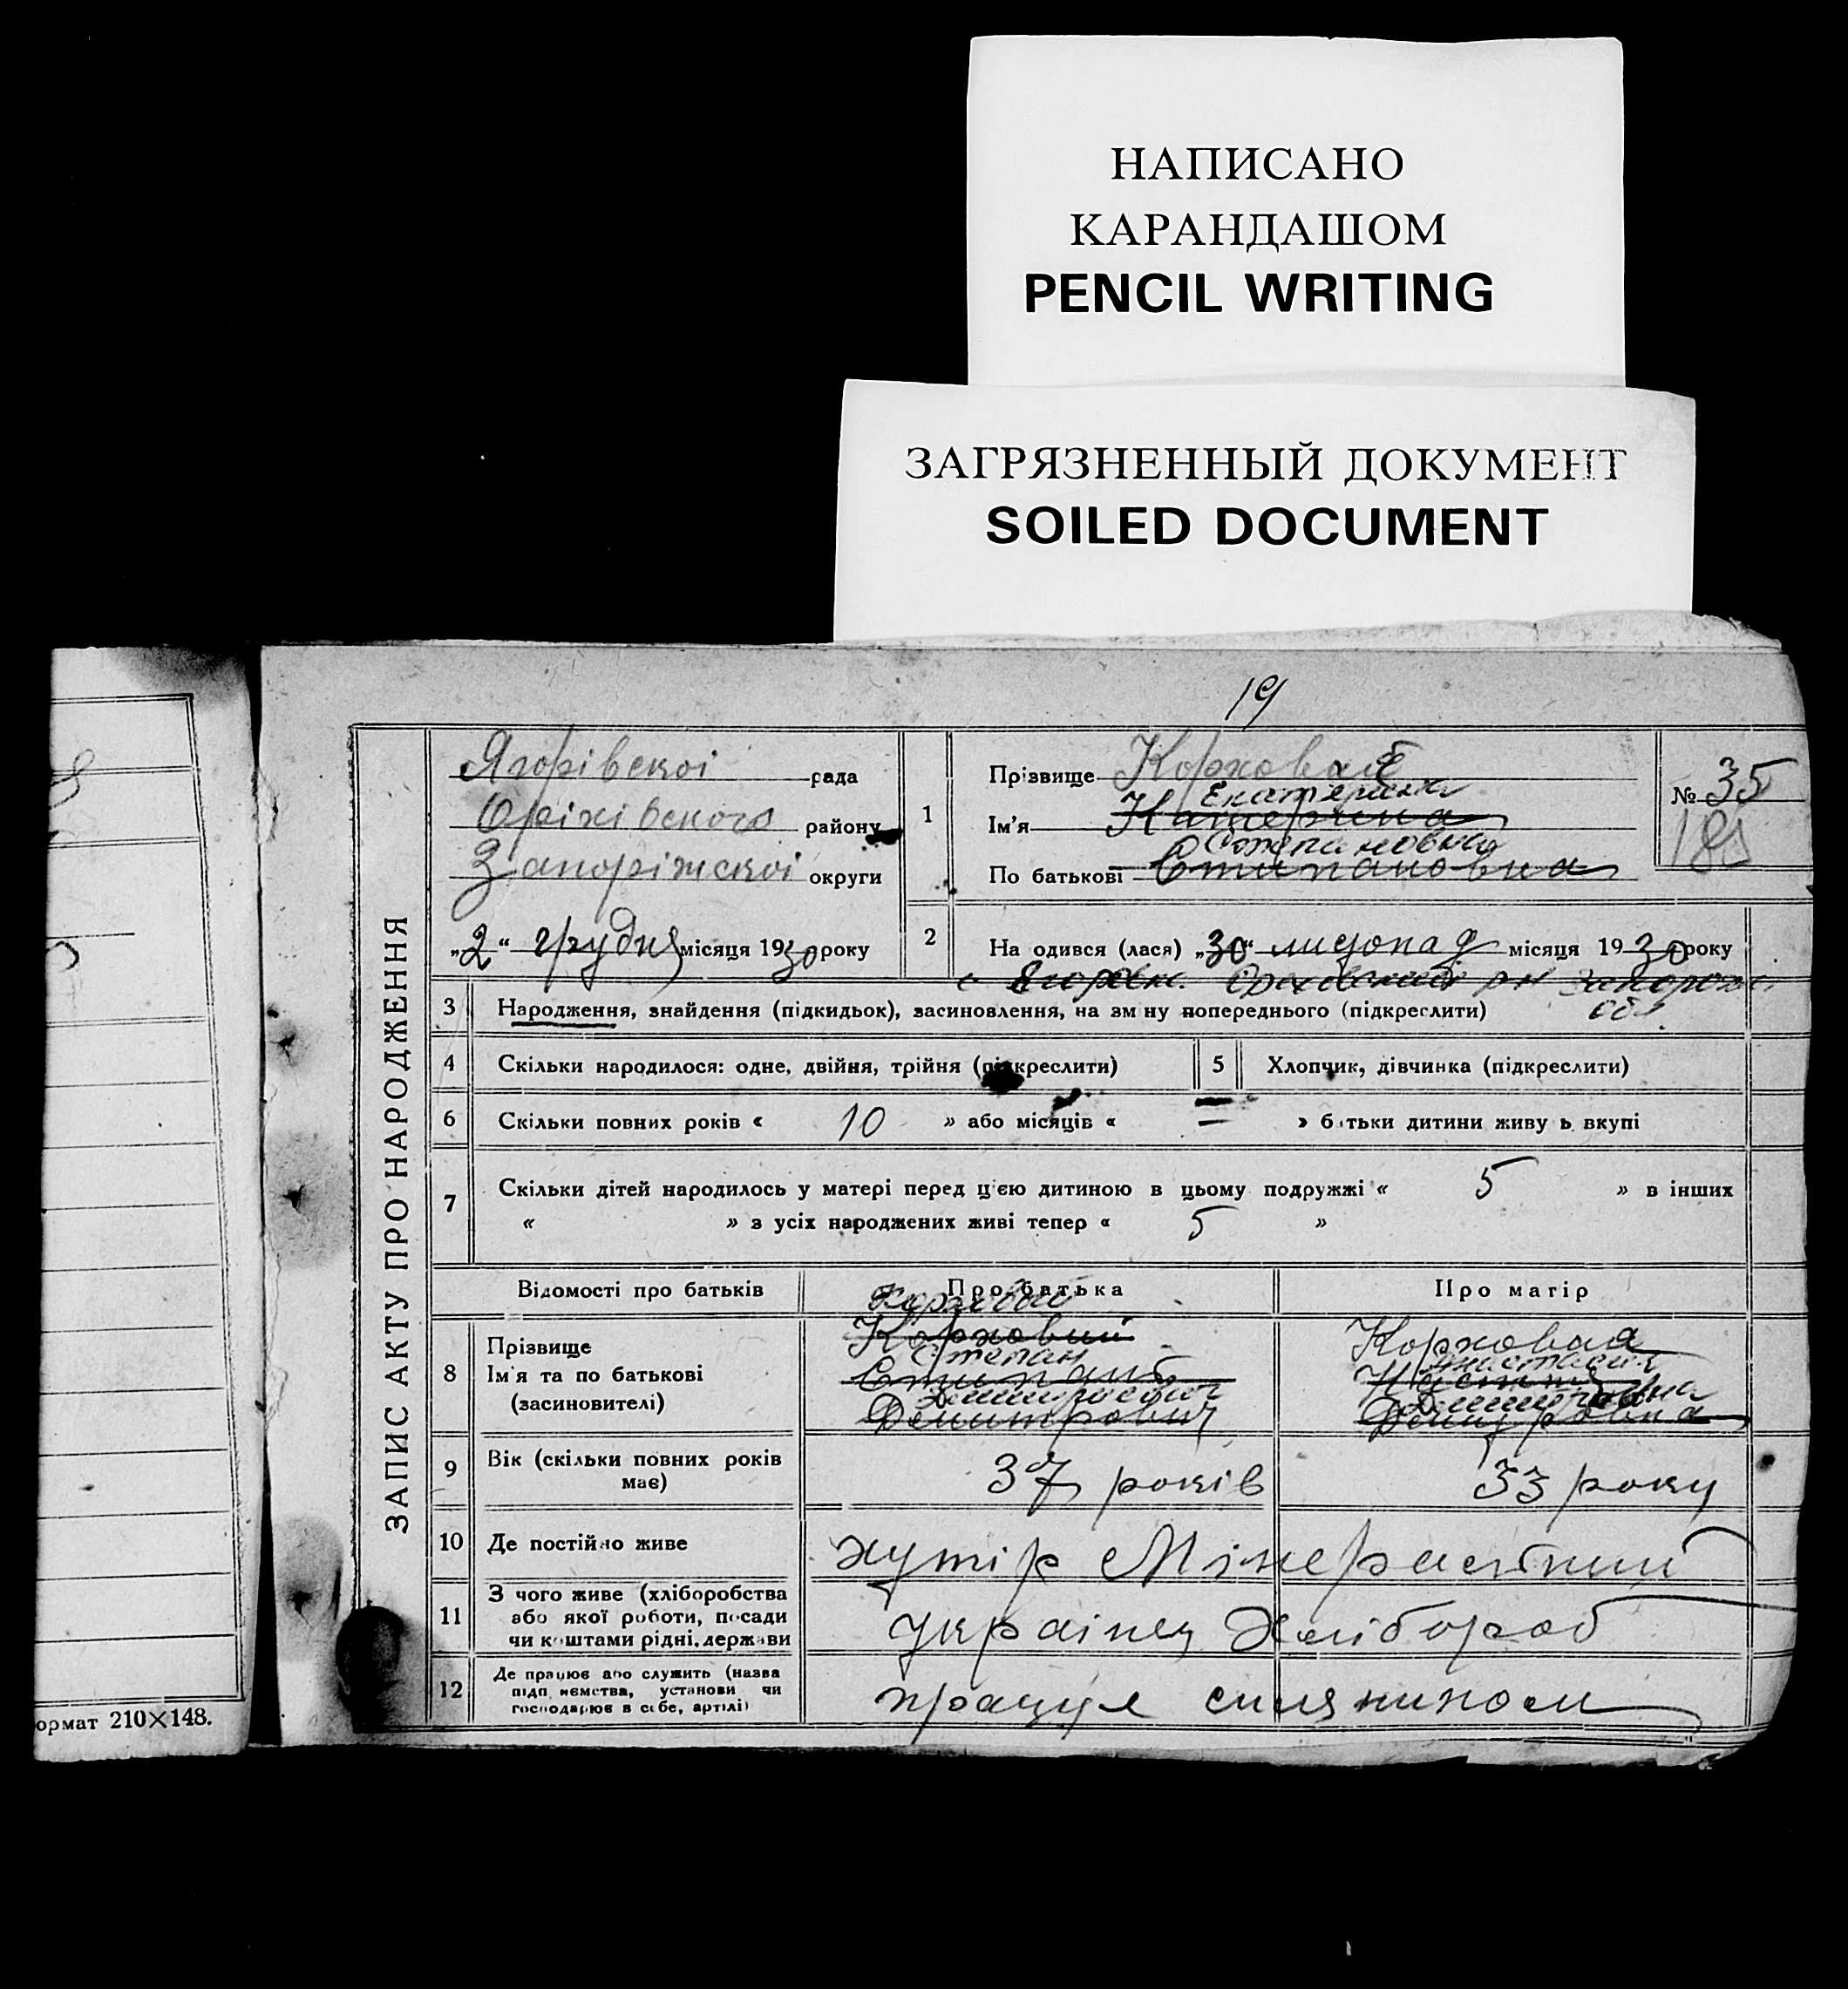 НАПИСАНО
КАРАНДАШОМ
PENCIL WRITING
ЗАГРЯЗНЕННЫЙ ДОКУМЕНТ
SOILED DOCUMENT
19
ЗАПИС АКТУ ПРО НАРОДЖЕННЯ
Ягорівскоі рада
Оріхівского району
Запоріжскоі округи
„2“ грудня місяця 1930 року
1 Прізвище Коржовая
Екатерина
Ім'я Катерина
Степановна
По батькові Стипановна
№ 35
181
2 На одився (лася) „30“ листопад місяця 1930 року
с Егоровк. Ореховский р-н Запорож.
обл.
3 Народження, знайдення (підкидьок), засиновлення, на зм ну попереднього (підкреслити)
4 Скільки народилося: одне, двійня, трійня (підкреслити)
5 Хлопчик, дівчинка (підкреслити)
6 Скільки повних років « 10 » або місяців « = » батьки дитини живу ь вкупі
7 Скільки дітей народилось у матері перед ц'єю дитиною в цьому подружжі « 5 » в інших
« » з усіх народжених живі тепер « 5 »
Відомості про батьків Про батька Про матір
8 Прізвище
Ім'я та по батькові
(засиновителі)
Коржовый
Коржовий
Степан
Дмитрович
Коржовая
Анастасия
Настя
Дмитровна
9 Вік (скільки повних років
має)
37 років 33 року
10 Де постійно живе хутір Мінеральний
11 З чого живе (хліборобства
або якої роботи, посади
чи коштами рідні, держави
українец Хлібороб
12 Де працює або служить (назва
підп иємства, установи чи
господарює в себе, артілі)
працуе силянином
ормат 210×148.